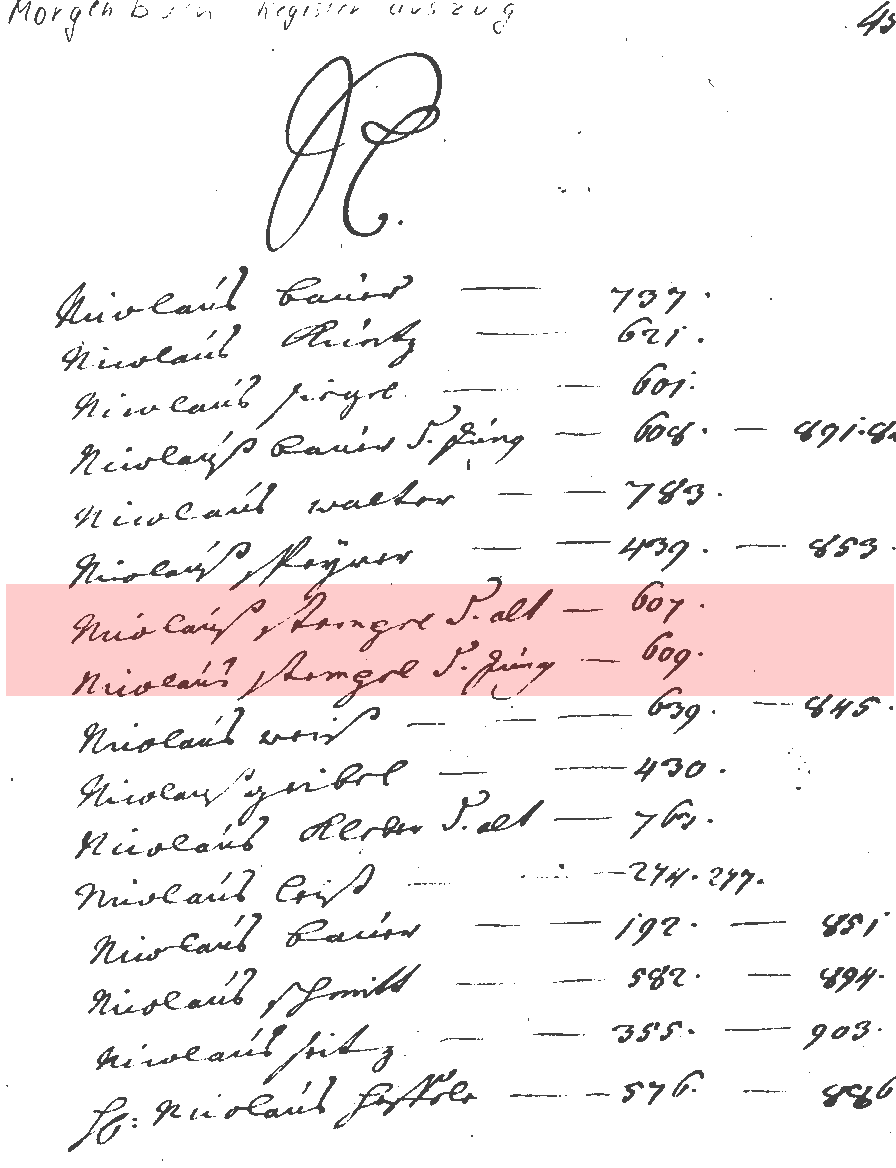 Morgenbuch Register auszug 45
N.
Nicolaus bauer — 737.
Nicolaus Kuntz — 621.
Nicolaus siegel — — 601.
Nicolauß bauer D. Jung — 608. — 891.
Nicolaus walter — — 783.
Nicolauß — — 439. — 853.
Nicolauß stengel D. alt — 607.
Nicolaus stengel D. Jung — 609.
Nicolaus weiß — — — 639. — 845.
Nicolauß geibel — — 430.
Nicolaus D. alt — 763.
Nicolaus leiß — — 274. 277.
Nicolaus bauer — — 192. — 851
Nicolaus schmitt — — 582. — 894.
Nicolaus seitz — — 355. — 903.
H: Nicolaus — — 576. — 886